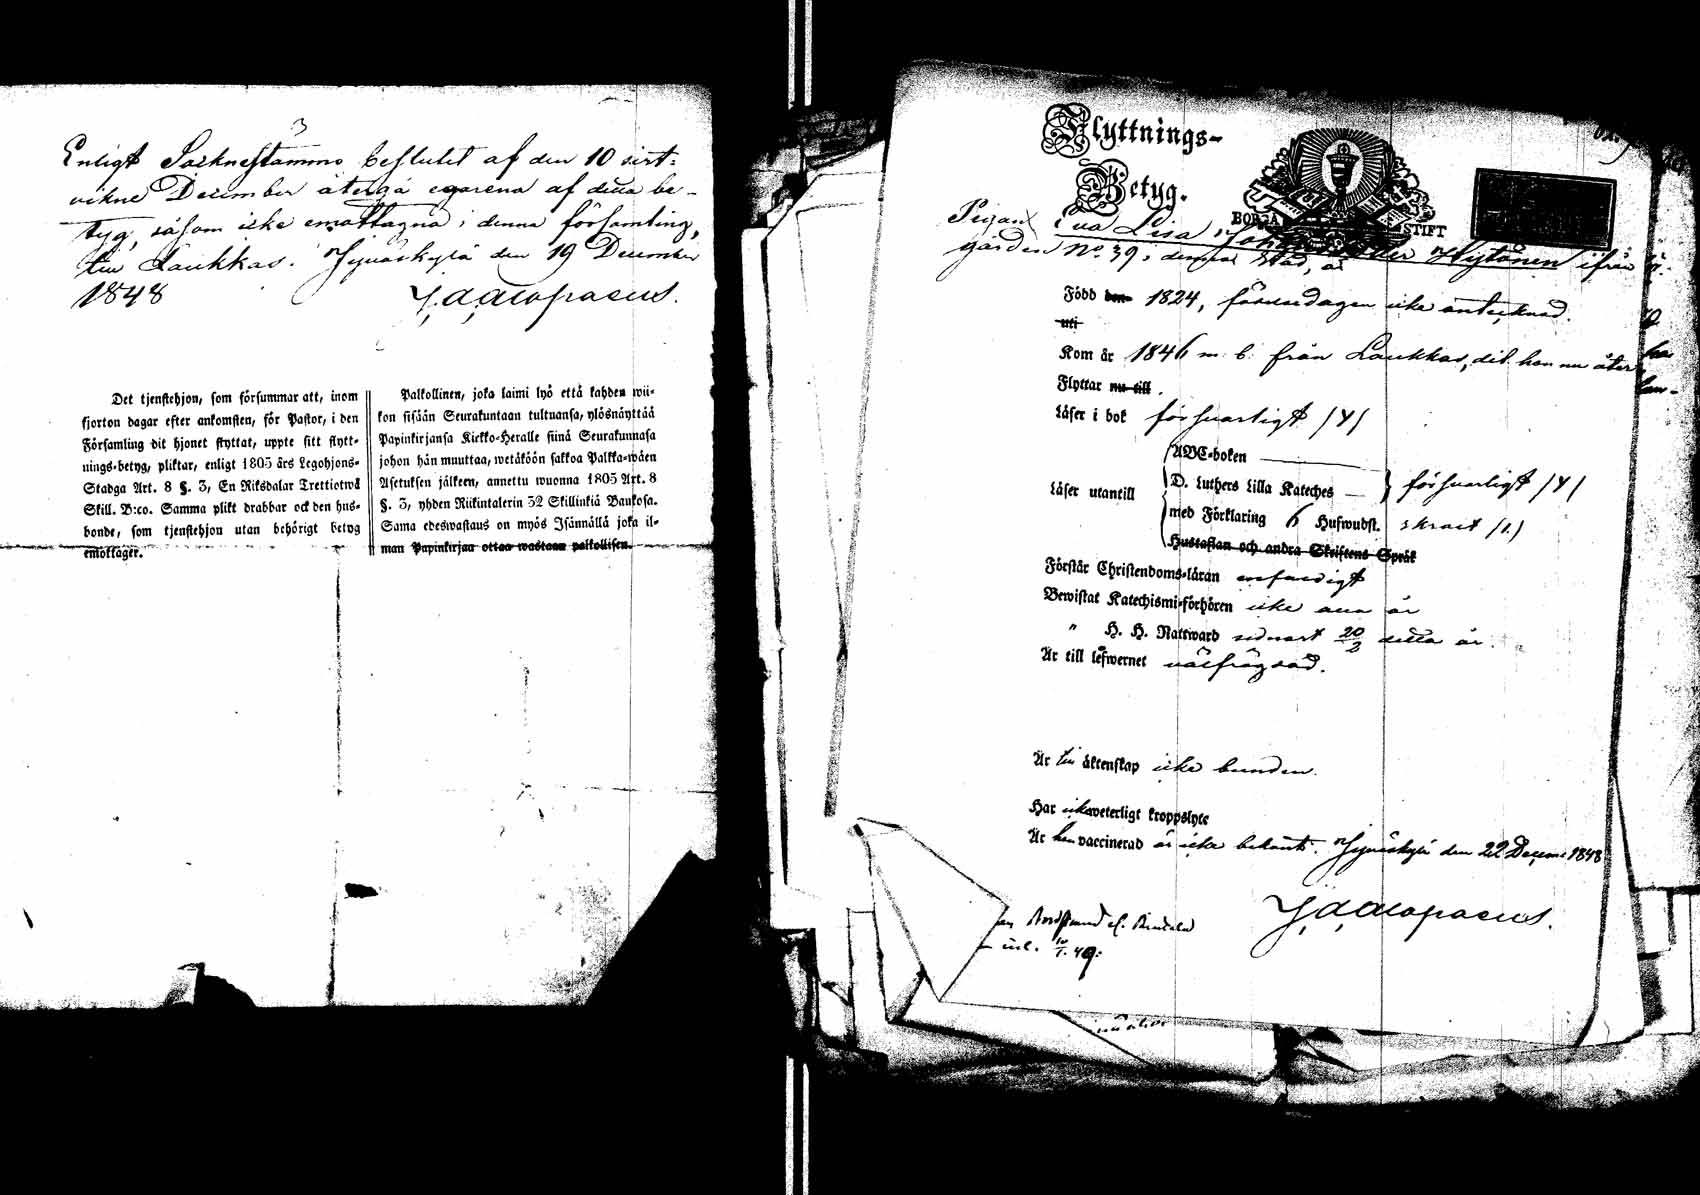 3
Enligt Socknestämmo beslutet af den 10 sist-
vikne December återgå egarena af detta be-
tyg, såsom icke emottagna i denna församling,
till Laukkas. Jyväskylä den 19 December
1848
Det tjenstehjon, som försummar att, inom
fjorton dagar efter ankomsten, för Pastor, i den
Församling dit hjonet flyttat, uppte sitt flytt-
nings-betyg, pliktar, enligt 1805 års Legohjons-
Stadga Art. 8 §. 3, En Riksdalar Trettiotwå
Skill. B:co. Samma plikt drabbar ock den hus-
bonde, som tjenstehjon utan behörigt betyg
emottager.
Palkollinen, joka laimi lyö että kahden wii-
kon sisään Seurakuntaan tultuansa, ylösnäyttää
Papinkirjansa Kirkko-Heralle siinä Seurakunnasa
johon hän muuttaa, wetäköön sakkoa Palkka-wäen
Asetuksen jälkeen, annettu wuonna 1805 Art. 8
§. 3, yhden Riikintalerin 32 Skillinkiä Bankosa.
Sama edeswastaus on myös Isännällä joka il-
man Papinkirjaa ottaa wastaan palkollisen.
Flyttnings-
Betyg.
BORGÅ STIFT
Pigan Eva Lisa Hytönen ifrån
gården No 39 i denna stad, är
Född den 1824, födensdagen icke antecknad.
uti
Kom år 1846 m. b. från Laukkas, dit hon nu åter
Flyttar nu till .
Läser i bok försvarligt /Y/
ABC-boken
D. Luthers Lilla Kateches försvarligt /Y/
Läser utantill
med Förklaring 6 Hufwudst. svart /1./
Hustaflan och andra Skriftens Språk
Förstår Christendoms-läran enfaldigt
Bewistat Katechismi-förhören icke
" H. H. Nattward sednast 20/2 detta år.
Är till lefwernet välfrägdad.
Är till äktenskap icke bunden.
Har icke weterligt kroppslyte
Är hon vaccinerad är icke bekant. Jyväskylä den 22 Decemb 1848